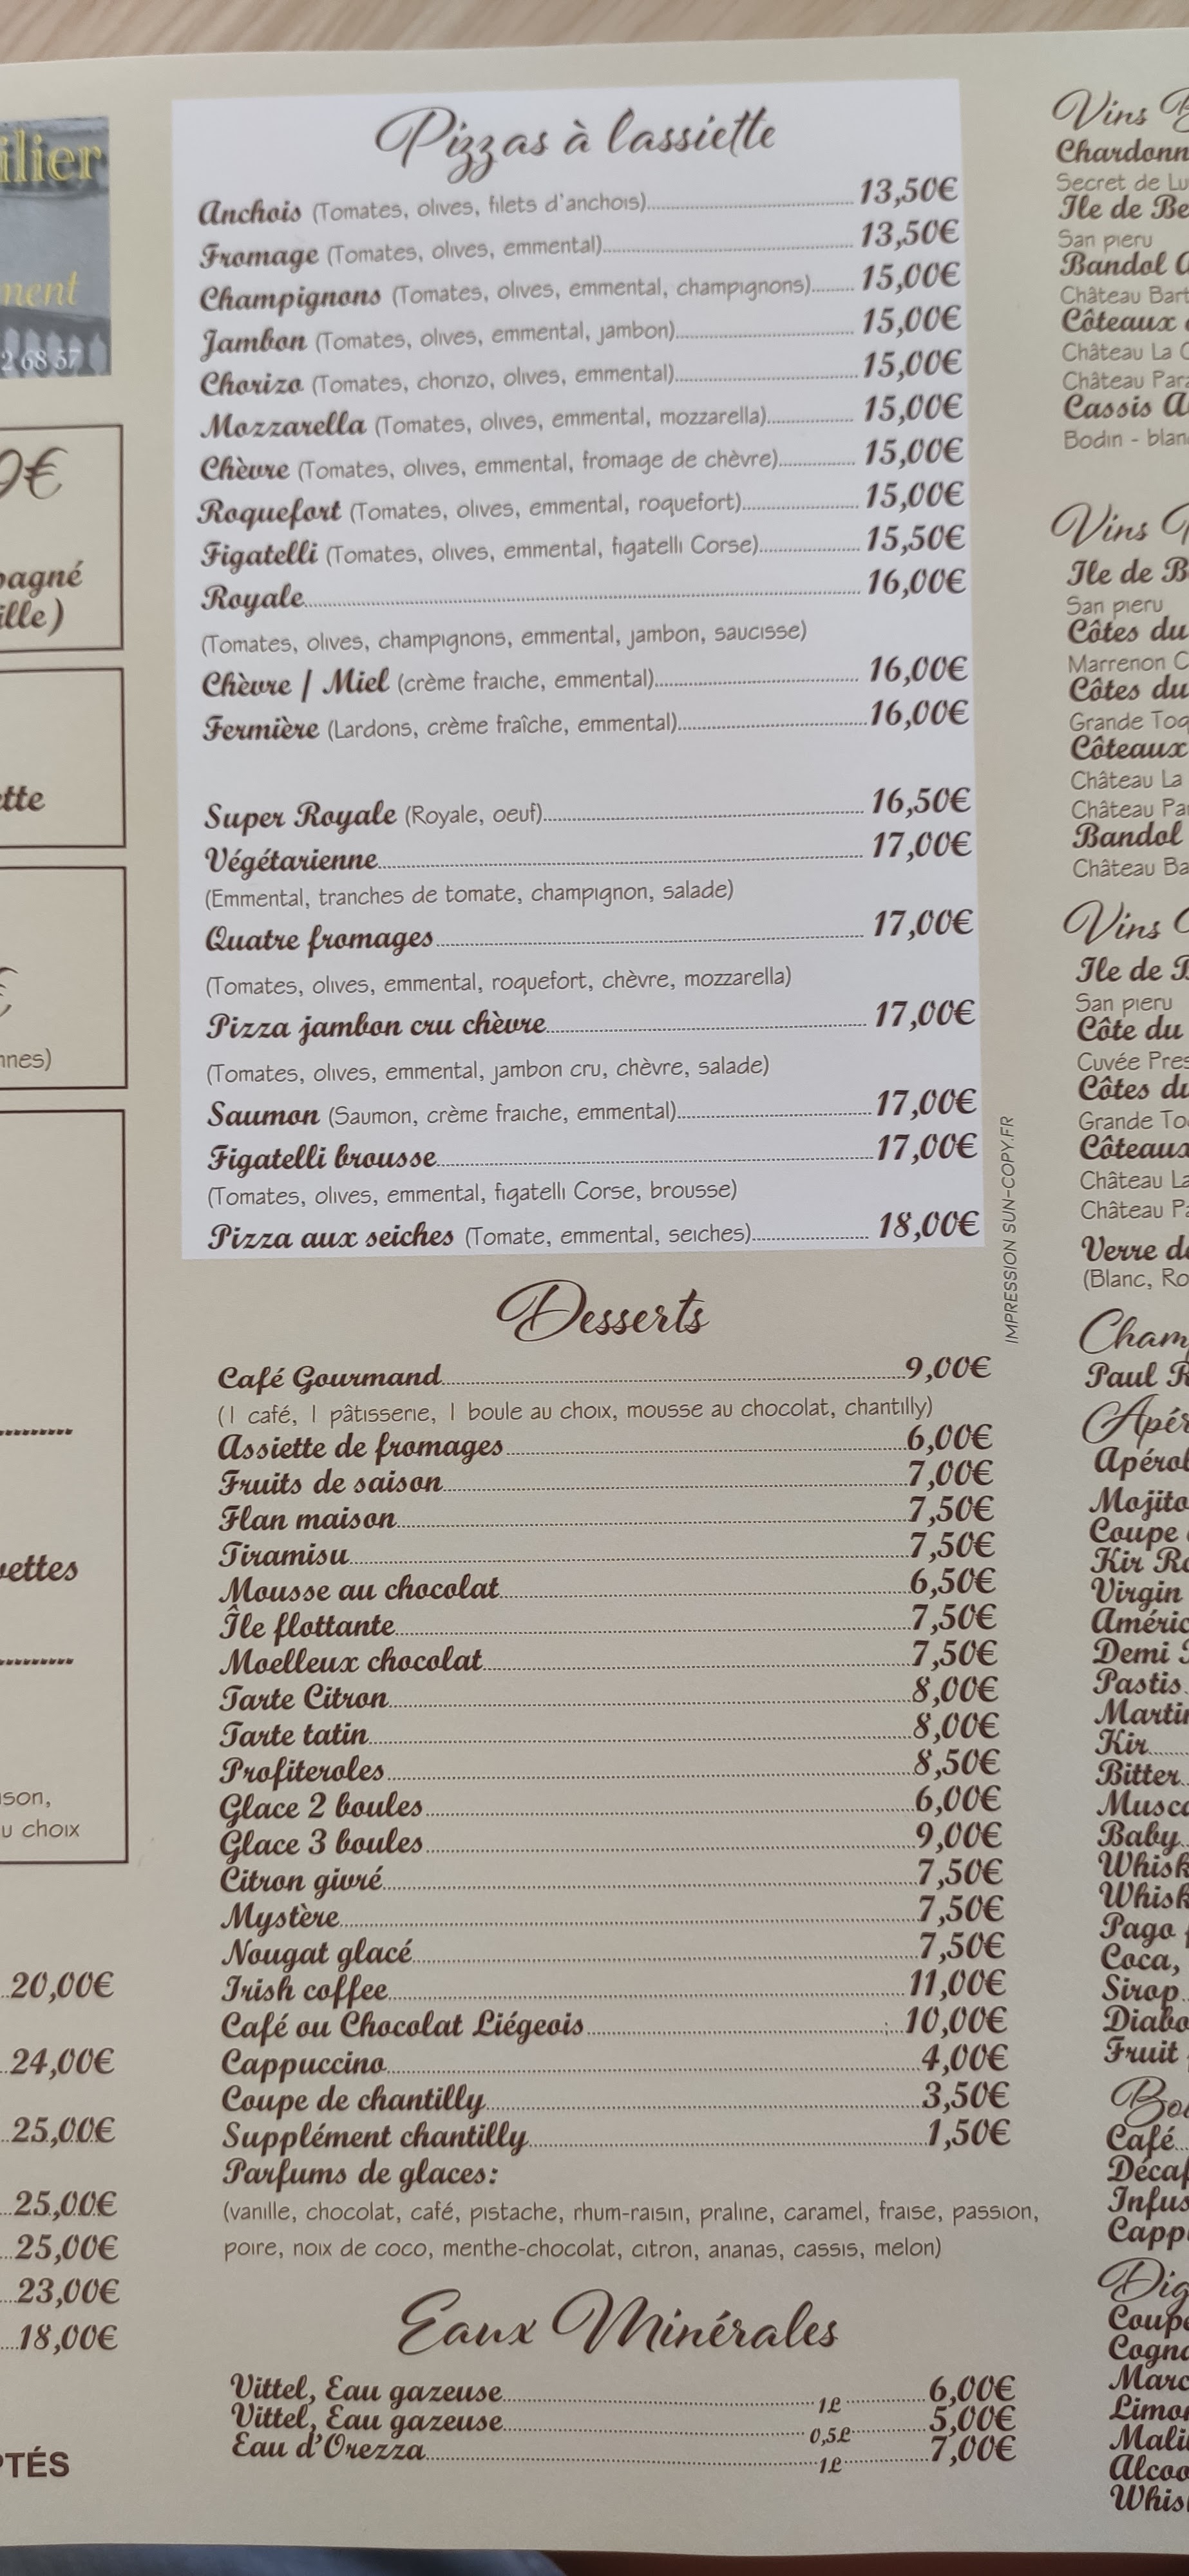 ilier
ment
2 68 57
9€
pagné
ille)
ette
€
nnes)
vettes
ison,
u choix
20,00€
24,00€
25,00€
25,00€
25,00€
23,00€
18,00€
PTÉS
Pizzas à lassiette
Anchois (Tomates, olives, filets d'anchois) 13,50€
Fromage (Tomates, olives, emmental) 13,50€
Champignons (Tomates, olives, emmental, champignons) 15,00€
Jambon (Tomates, olives, emmental, jambon) 15,00€
Chorizo (Tomates, chorizo, olives, emmental) 15,00€
Mozzarella (Tomates, olives, emmental, mozzarella) 15,00€
Chèvre (Tomates, olives, emmental, fromage de chèvre) 15,00€
Roquefort (Tomates, olives, emmental, roquefort) 15,00€
Figatelli (Tomates, olives, emmental, figatelli Corse) 15,50€
Royale 16,00€
(Tomates, olives, champignons, emmental, jambon, saucisse)
Chèvre / Miel (crème fraiche, emmental) 16,00€
Fermière (Lardons, crème fraîche, emmental) 16,00€
Super Royale (Royale, oeuf) 16,50€
Végétarienne 17,00€
(Emmental, tranches de tomate, champignon, salade)
Quatre fromages 17,00€
(Tomates, olives, emmental, roquefort, chèvre, mozzarella)
Pizza jambon cru chèvre 17,00€
(Tomates, olives, emmental, jambon cru, chèvre, salade)
Saumon (Saumon, crème fraiche, emmental) 17,00€
Figatelli brousse 17,00€
(Tomates, olives, emmental, figatelli Corse, brousse)
Pizza aux seiches (Tomate, emmental, seiches) 18,00€
IMPRESSION SUN-COPY.FR
Desserts
Café Gourmand 9,00€
(1 café, 1 pâtisserie, 1 boule au choix, mousse au chocolat, chantilly)
Assiette de fromages 6,00€
Fruits de saison 7,00€
Flan maison 7,50€
Tiramisu 7,50€
Mousse au chocolat 6,50€
Île flottante 7,50€
Moelleux chocolat 7,50€
Tarte Citron 8,00€
Tarte tatin 8,00€
Profiteroles 8,50€
Glace 2 boules 6,00€
Glace 3 boules 9,00€
Citron givré 7,50€
Mystère 7,50€
Nougat glacé 7,50€
Irish coffee 11,00€
Café ou Chocolat Liégeois 10,00€
Cappuccino 4,00€
Coupe de chantilly 3,50€
Supplément chantilly 1,50€
Parfums de glaces:
(vanille, chocolat, café, pistache, rhum-raisin, praline, caramel, fraise, passion,
poire, noix de coco, menthe-chocolat, citron, ananas, cassis, melon)
Eaux Minérales
Vittel, Eau gazeuse 1L 6,00€
Vittel, Eau gazeuse 0,5L 5,00€
Eau d'Orezza 1L 7,00€
Vins B
Chardonn
Secret de Lu
Ile de Be
San pieru
Bandol
Château Bart
Côteaux
Château La C
Château Para
Cassis
Bodin - blan
Vins
Ile de B
San pieru
Côtes du
Marrenon C
Côtes du
Grande Toq
Côteaux
Château La
Château Pa
Bandol
Château Ba
Vins
Ile de B
San pieru
Côte du
Cuvée Pres
Côtes du
Grande To
Côteaux
Château La
Château Pa
Verre de
(Blanc, Ro
Cham
Paul R
Apér
Apérol
Mojito
Coupe
Kir Ro
Virgin
Améric
Demi
Pastis
Martin
Kir
Bitter
Musca
Baby
Whisk
Whisk
Pago
Coca,
Sirop
Diabo
Fruit
Boi
Café
Décaf
Infus
Capp
Dig
Coupe
Cogna
Marc
Limon
Mali
Alcoo
Whis